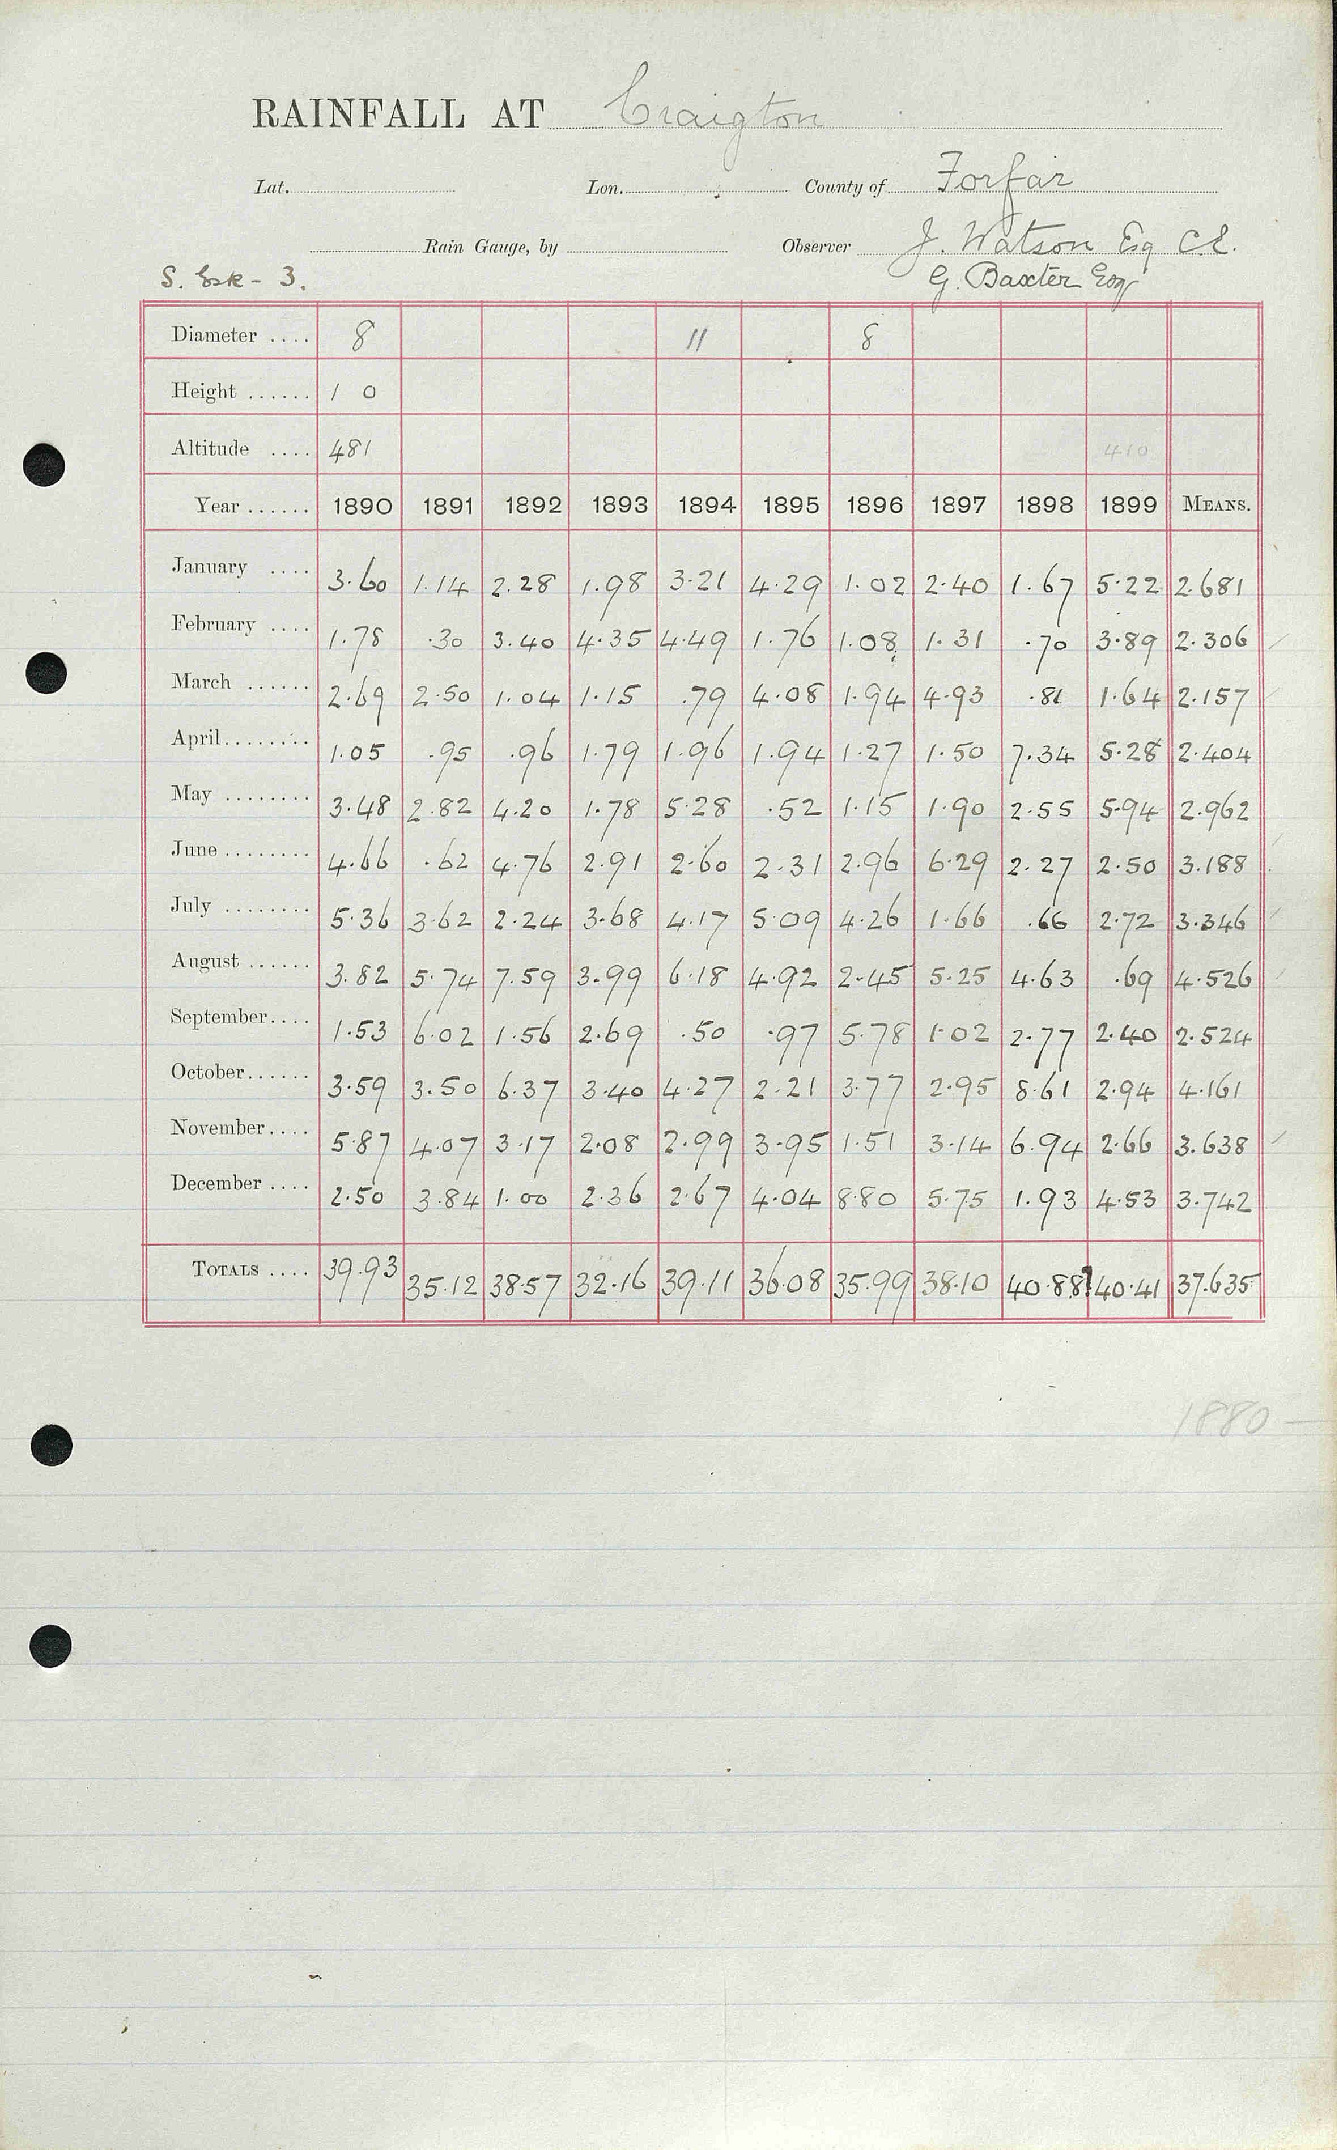 RAINFALL AT Craigton
Lat. Lon. County of Forfar
Rain Gauge, by Observer J. Watson Esq C.E.
S. Esk - 3. G. Baxter Esq
Diameter .... 8 11 8
Height ...... 1 0
Altitude .... 481 410
Year ...... 1890 1891 1892 1893 1894 1895 1896 1897 1898 1899 MEANS.
January .... 3.60 1.14 2.28 1.98 3.21 4.29 1.02 2.40 1.67 5.22 2.681
February .... 1.78 .30 3.40 4.35 4.49 1.76 1.08 1.31 .70 3.89 2.306
March ...... 2.69 2.50 1.04 1.15 .79 4.08 1.94 4.93 .81 1.64 2.157
April........ 1.05 .95 .96 1.79 1.96 1.94 1.27 1.50 7.34 5.28 2.404
May ........ 3.48 2.82 4.20 1.78 5.28 .52 1.15 1.90 2.55 5.94 2.962
June ........ 4.66 .62 4.76 2.91 2.60 2.31 2.96 6.29 2.27 2.50 3.188
July ........ 5.36 3.62 2.24 3.68 4.17 5.09 4.26 1.66 .66 2.72 3.346
August ...... 3.82 5.74 7.59 3.99 6.18 4.92 2.45 5.25 4.63 .69 4.526
September.... 1.53 6.02 1.56 2.69 .50 .97 5.78 1.02 2.77 2.40 2.524
October...... 3.59 3.50 6.37 3.40 4.27 2.21 3.77 2.95 8.61 2.94 4.161
November.... 5.87 4.07 3.17 2.08 2.99 3.95 1.51 3.14 6.94 2.66 3.638
December .... 2.50 3.84 1.00 2.36 2.67 4.04 8.80 5.75 1.93 4.53 3.742
TOTALS .... 39.93 35.12 38.57 32.16 39.11 36.08 35.99 38.10 40.88? 40.41 37.635
1880 —